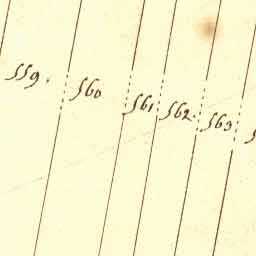 559.
560
561
562.
563